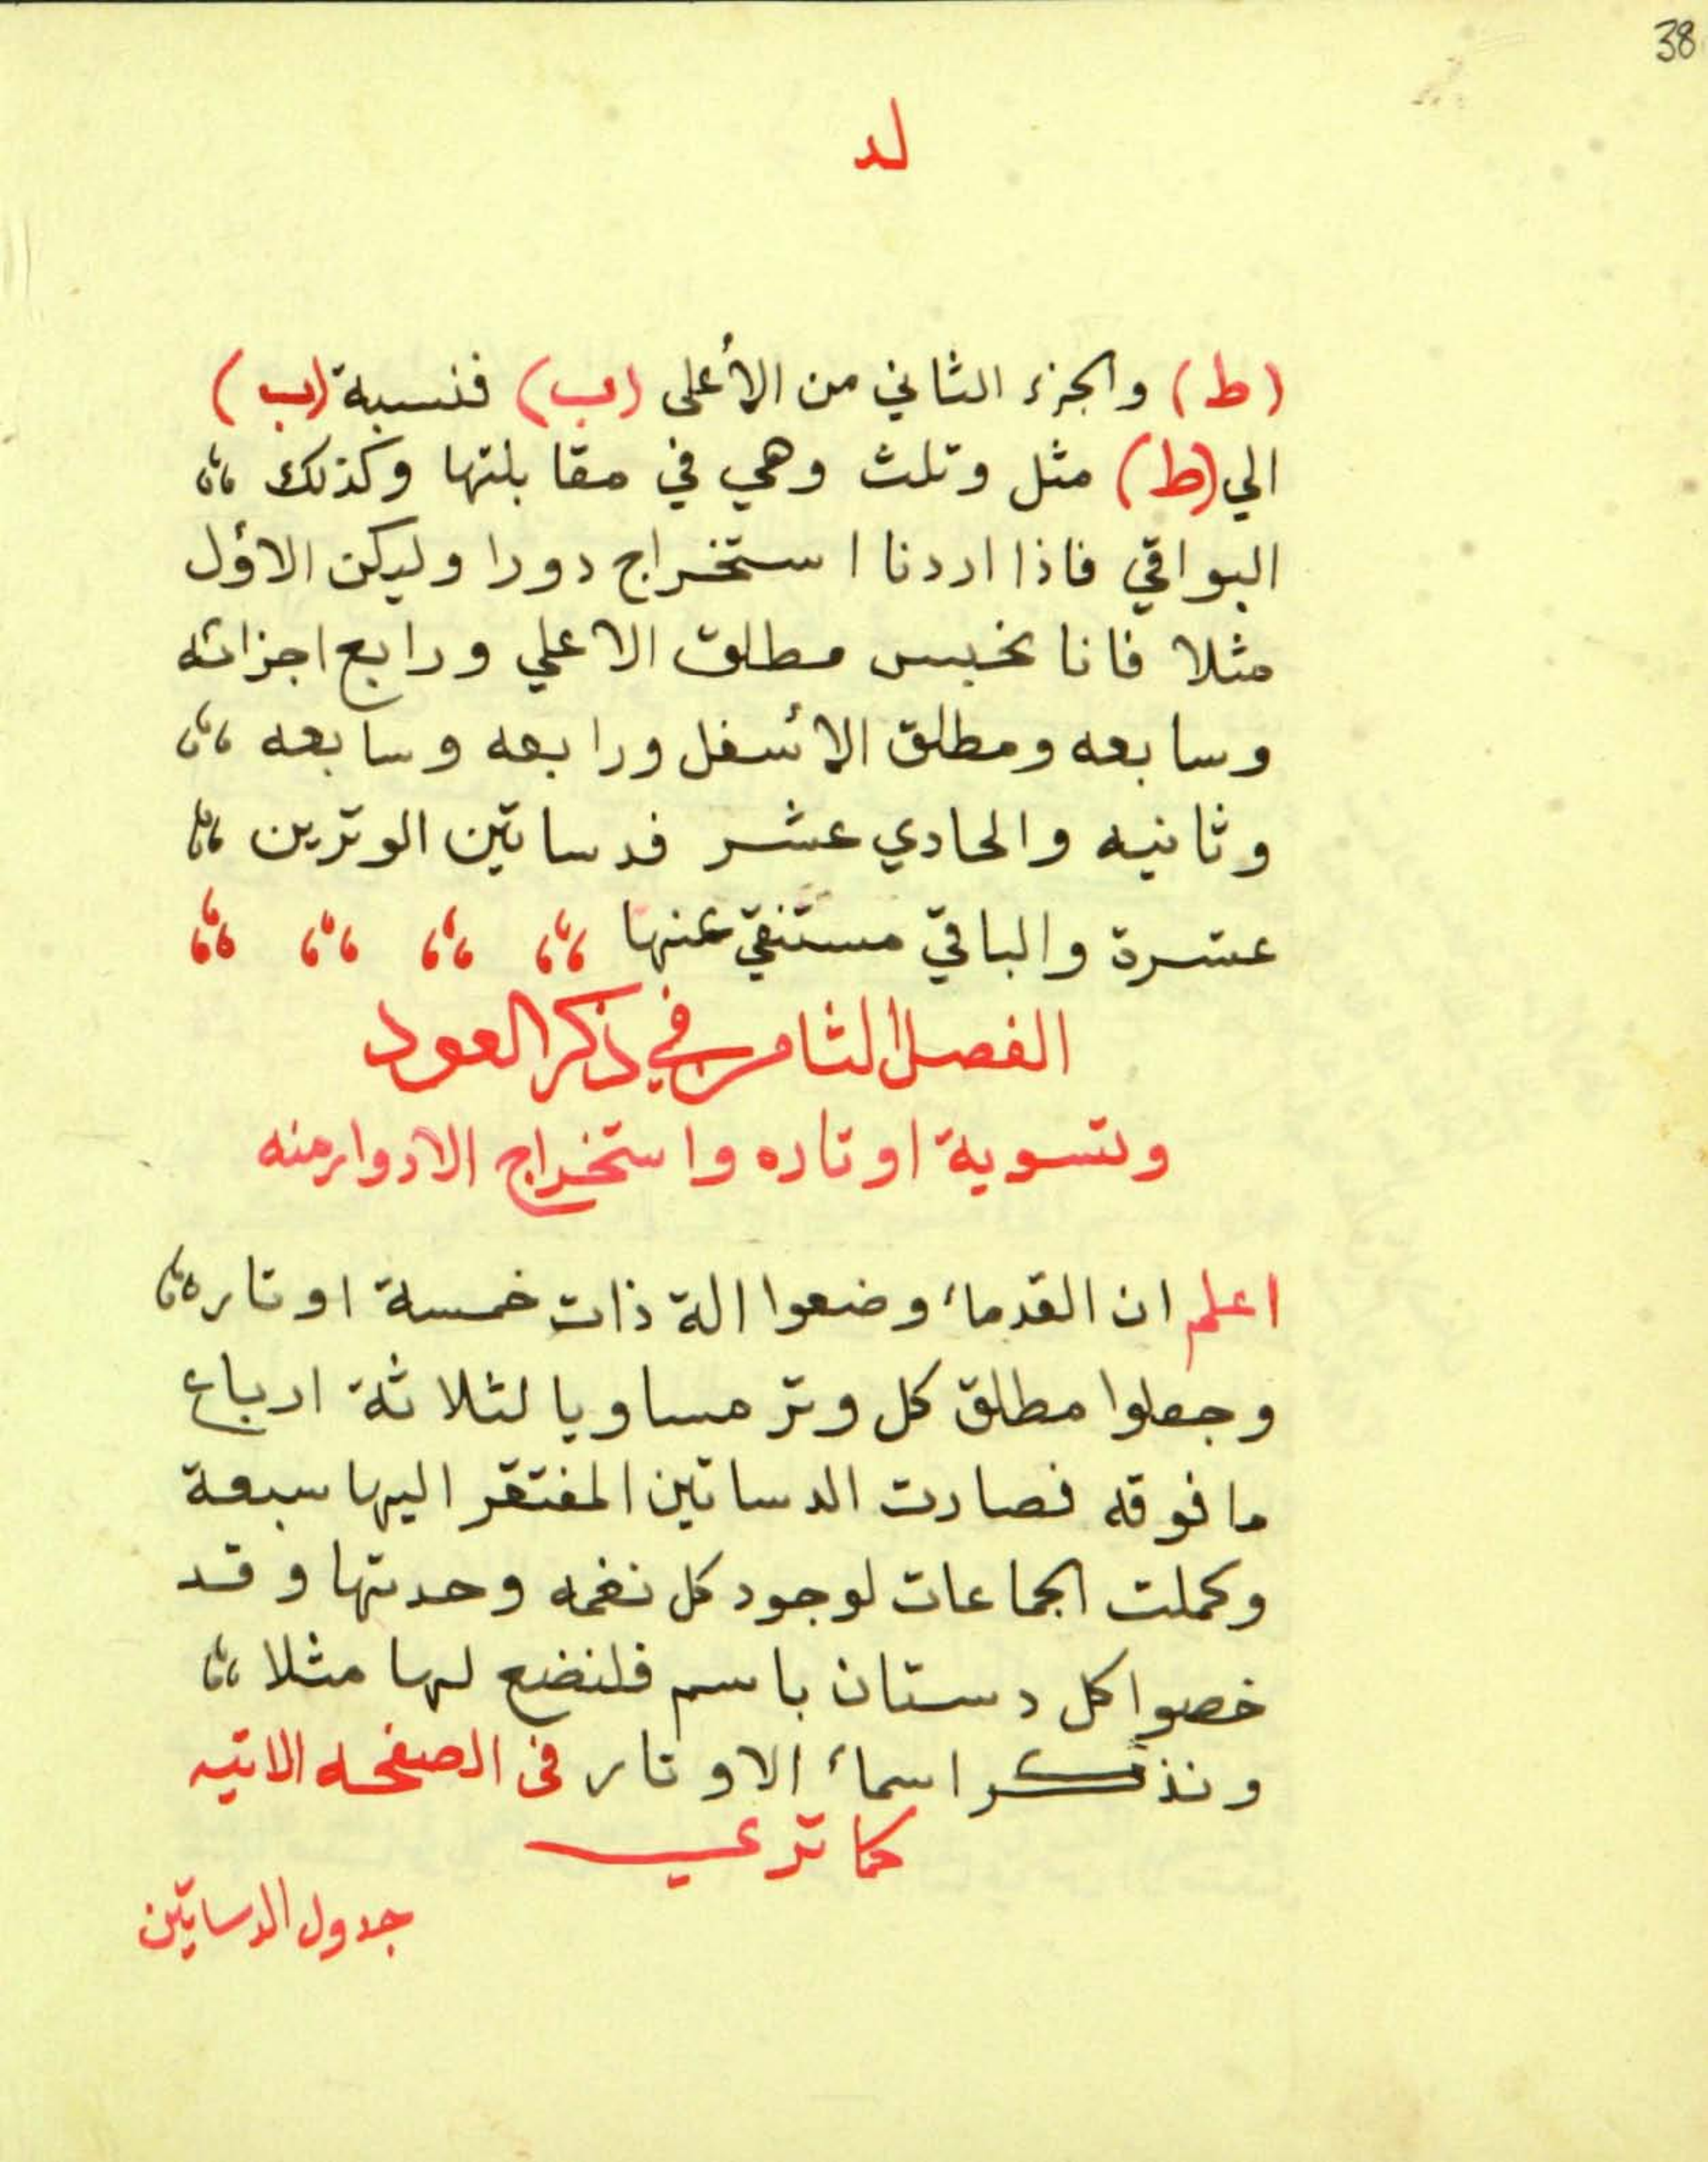 38
لد
(ط) والجزء الثاني من الأعلى (ب) فنسبة (ب)
الي (ط) مثل وتلث وهي في مقابلتها وكذلك
البواقي فاذا اردنا استخراج دورا وليكن الاؤل
مثلا فانا نحبس مطلق الاعلي ورابع اجزائه
وسابعه ومطلق الأسفل ورابعه وسابعه
وثانيه والحادي عشر فدساتين الوترين
عشرة والباقي مستنقي عنها
الفصل الثامن في ذكر العود
وتسوية اوتاره واستخراج الادوار منه
اعلم ان القدماء وضعوا الة ذات خمسة اوتاره
وجعلوا مطلق كل وتر مساويا لثلاثة ارباع
مافوقه فصارت الدساتين المفتقر اليها سبعة
وكملت الجماعات لوجود كل نغمه وحدتها وقد
خصوا كل دستان باسم فلنضع لها مثلا
ونذكر اسماء الاوتار فى الصفحه الاتيه
كما ترعي
جدول الدساتين